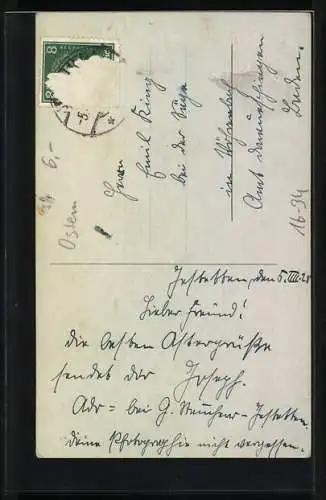 8
8
Ostern
6,-
Herrn
Emil King
bei der Säge
in Vöhrenbach
Amt Donaueschingen
Baden.
16-34
Jestetten, den 5. III. 28
Lieber Freund!
Die besten Ostergrüße
sendet dir Joseph.
Adr = bei G. Jestetten.
Deine Photographie nicht vergessen.